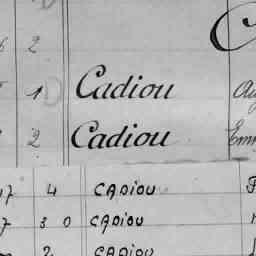 2
1 Cadiou
2 Cadiou
17 4 CADIOU
7 3 0 CADIOU
2 CADIOU